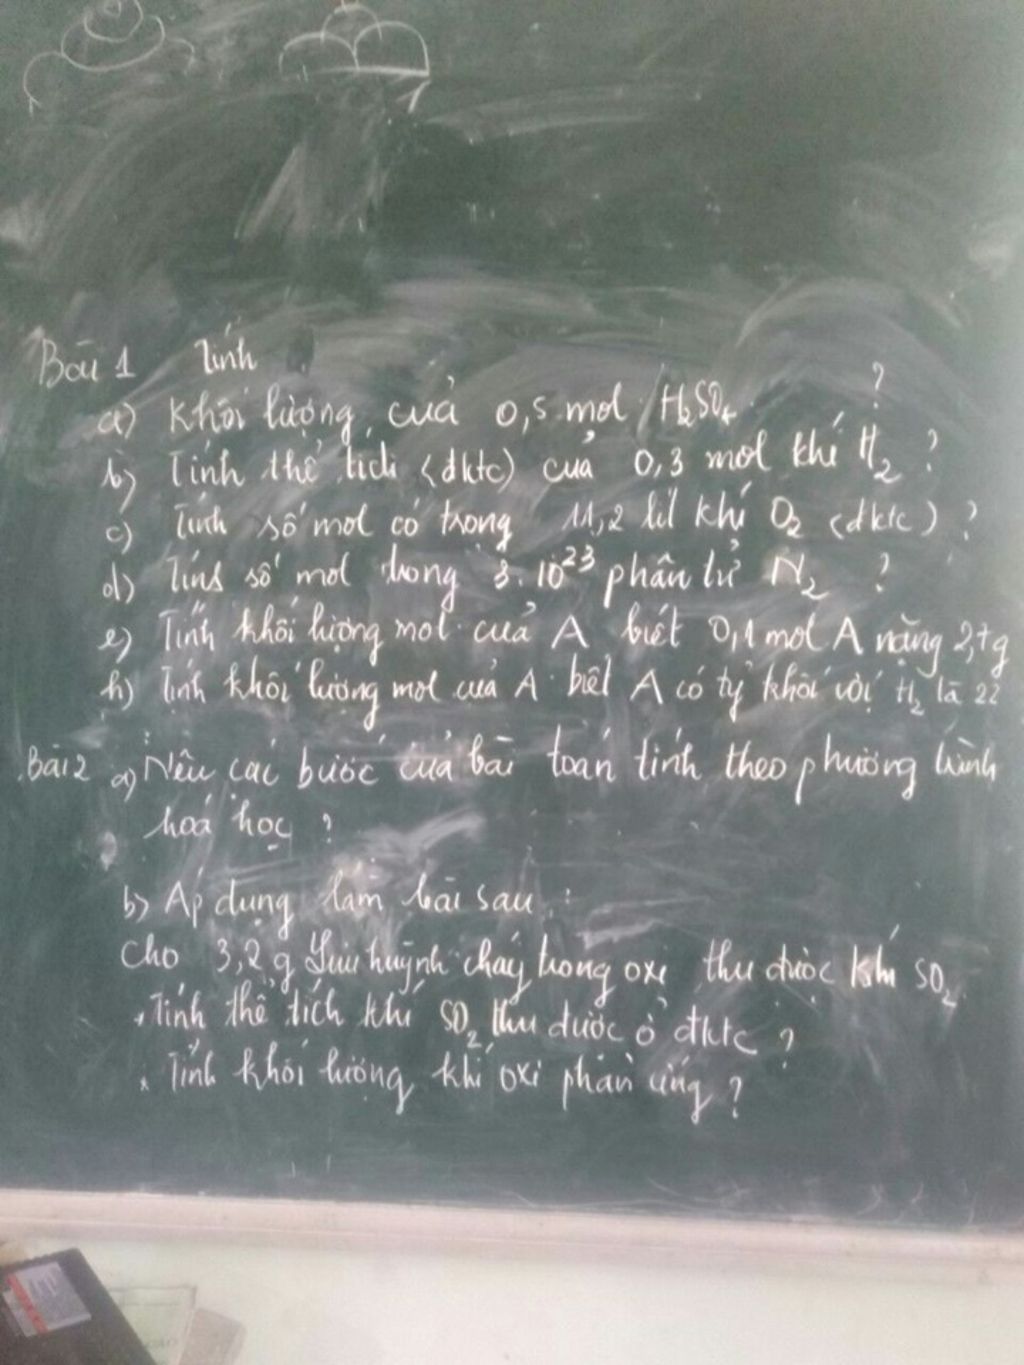 Bài 1 Tính
a) Khối lượng của 0,5 mol H₂SO₄ ?
b) Tính thể tích (đktc) của 0,3 mol khí H₂ ?
c) Tính số mol có trong 11,2 lít khí O₂ (đktc) ?
d) Tính số mol trong 3.10²³ phân tử N₂ ?
e) Tính khối lượng mol của A biết 0,1 mol A nặng 2,7g
h) Tính khối lượng mol của A biết A có tỷ khối với H₂ là 22
Bài 2 a) Nêu các bước của bài toán tính theo phương trình
hoá học ?
b) Áp dụng làm bài sau :
Cho 3,2 g lưu huỳnh cháy trong oxi thu được khí SO₂
. Tính thể tích khí SO₂ thu được ở đktc ?
* Tính khối lượng khí oxi phản ứng ?